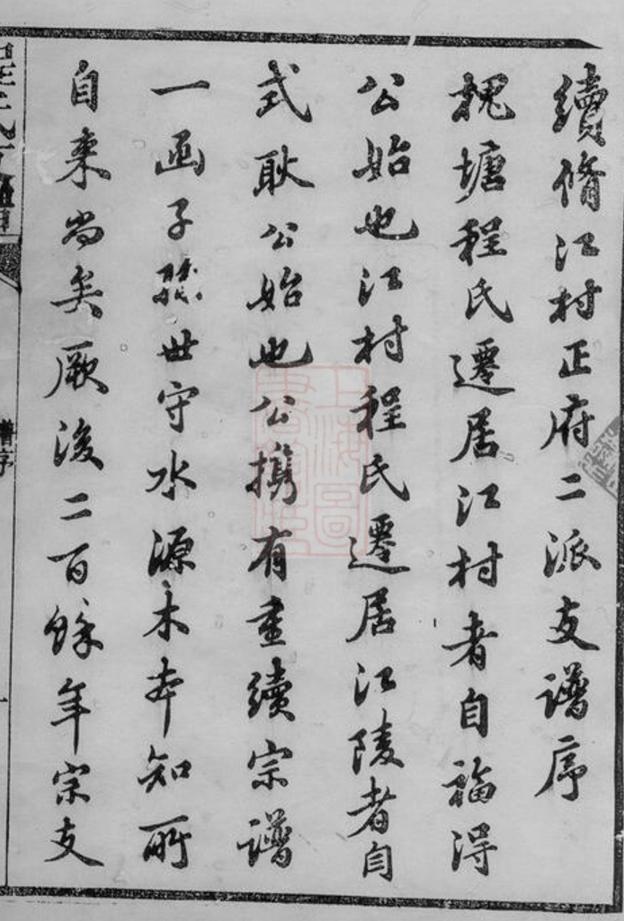 續脩江村正府二派支譜序
槐塘程氏遷居江村者自福得
公始也江村程氏遷居江陵者自
式耿公始也公攜有重續宗譜
一函子孫世守水源木本知所
自來尚矣厥後二百餘年宗支
譜序
上海圖書館藏